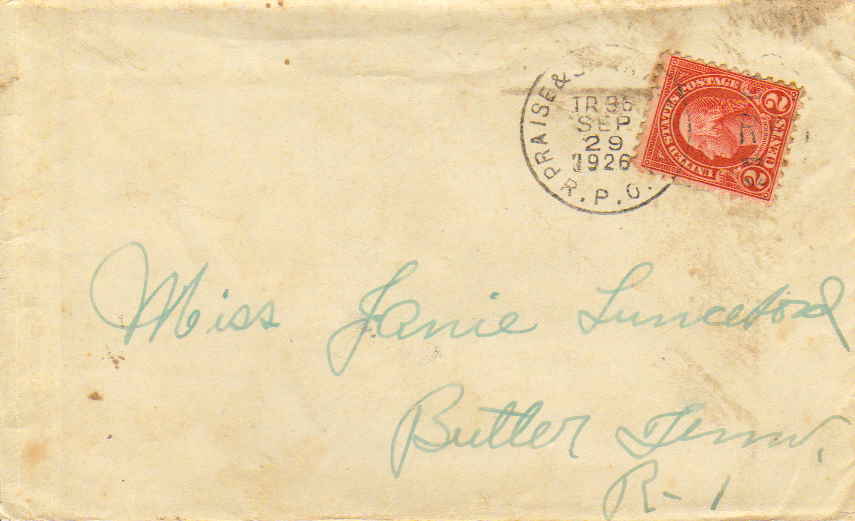 PRAISE &
TR 36
SEP
29
1926
R.P.O.
UNITED STATES POSTAGE
2 CENTS 2
Miss Janie Lunceford
Butler Tenn.
R-1